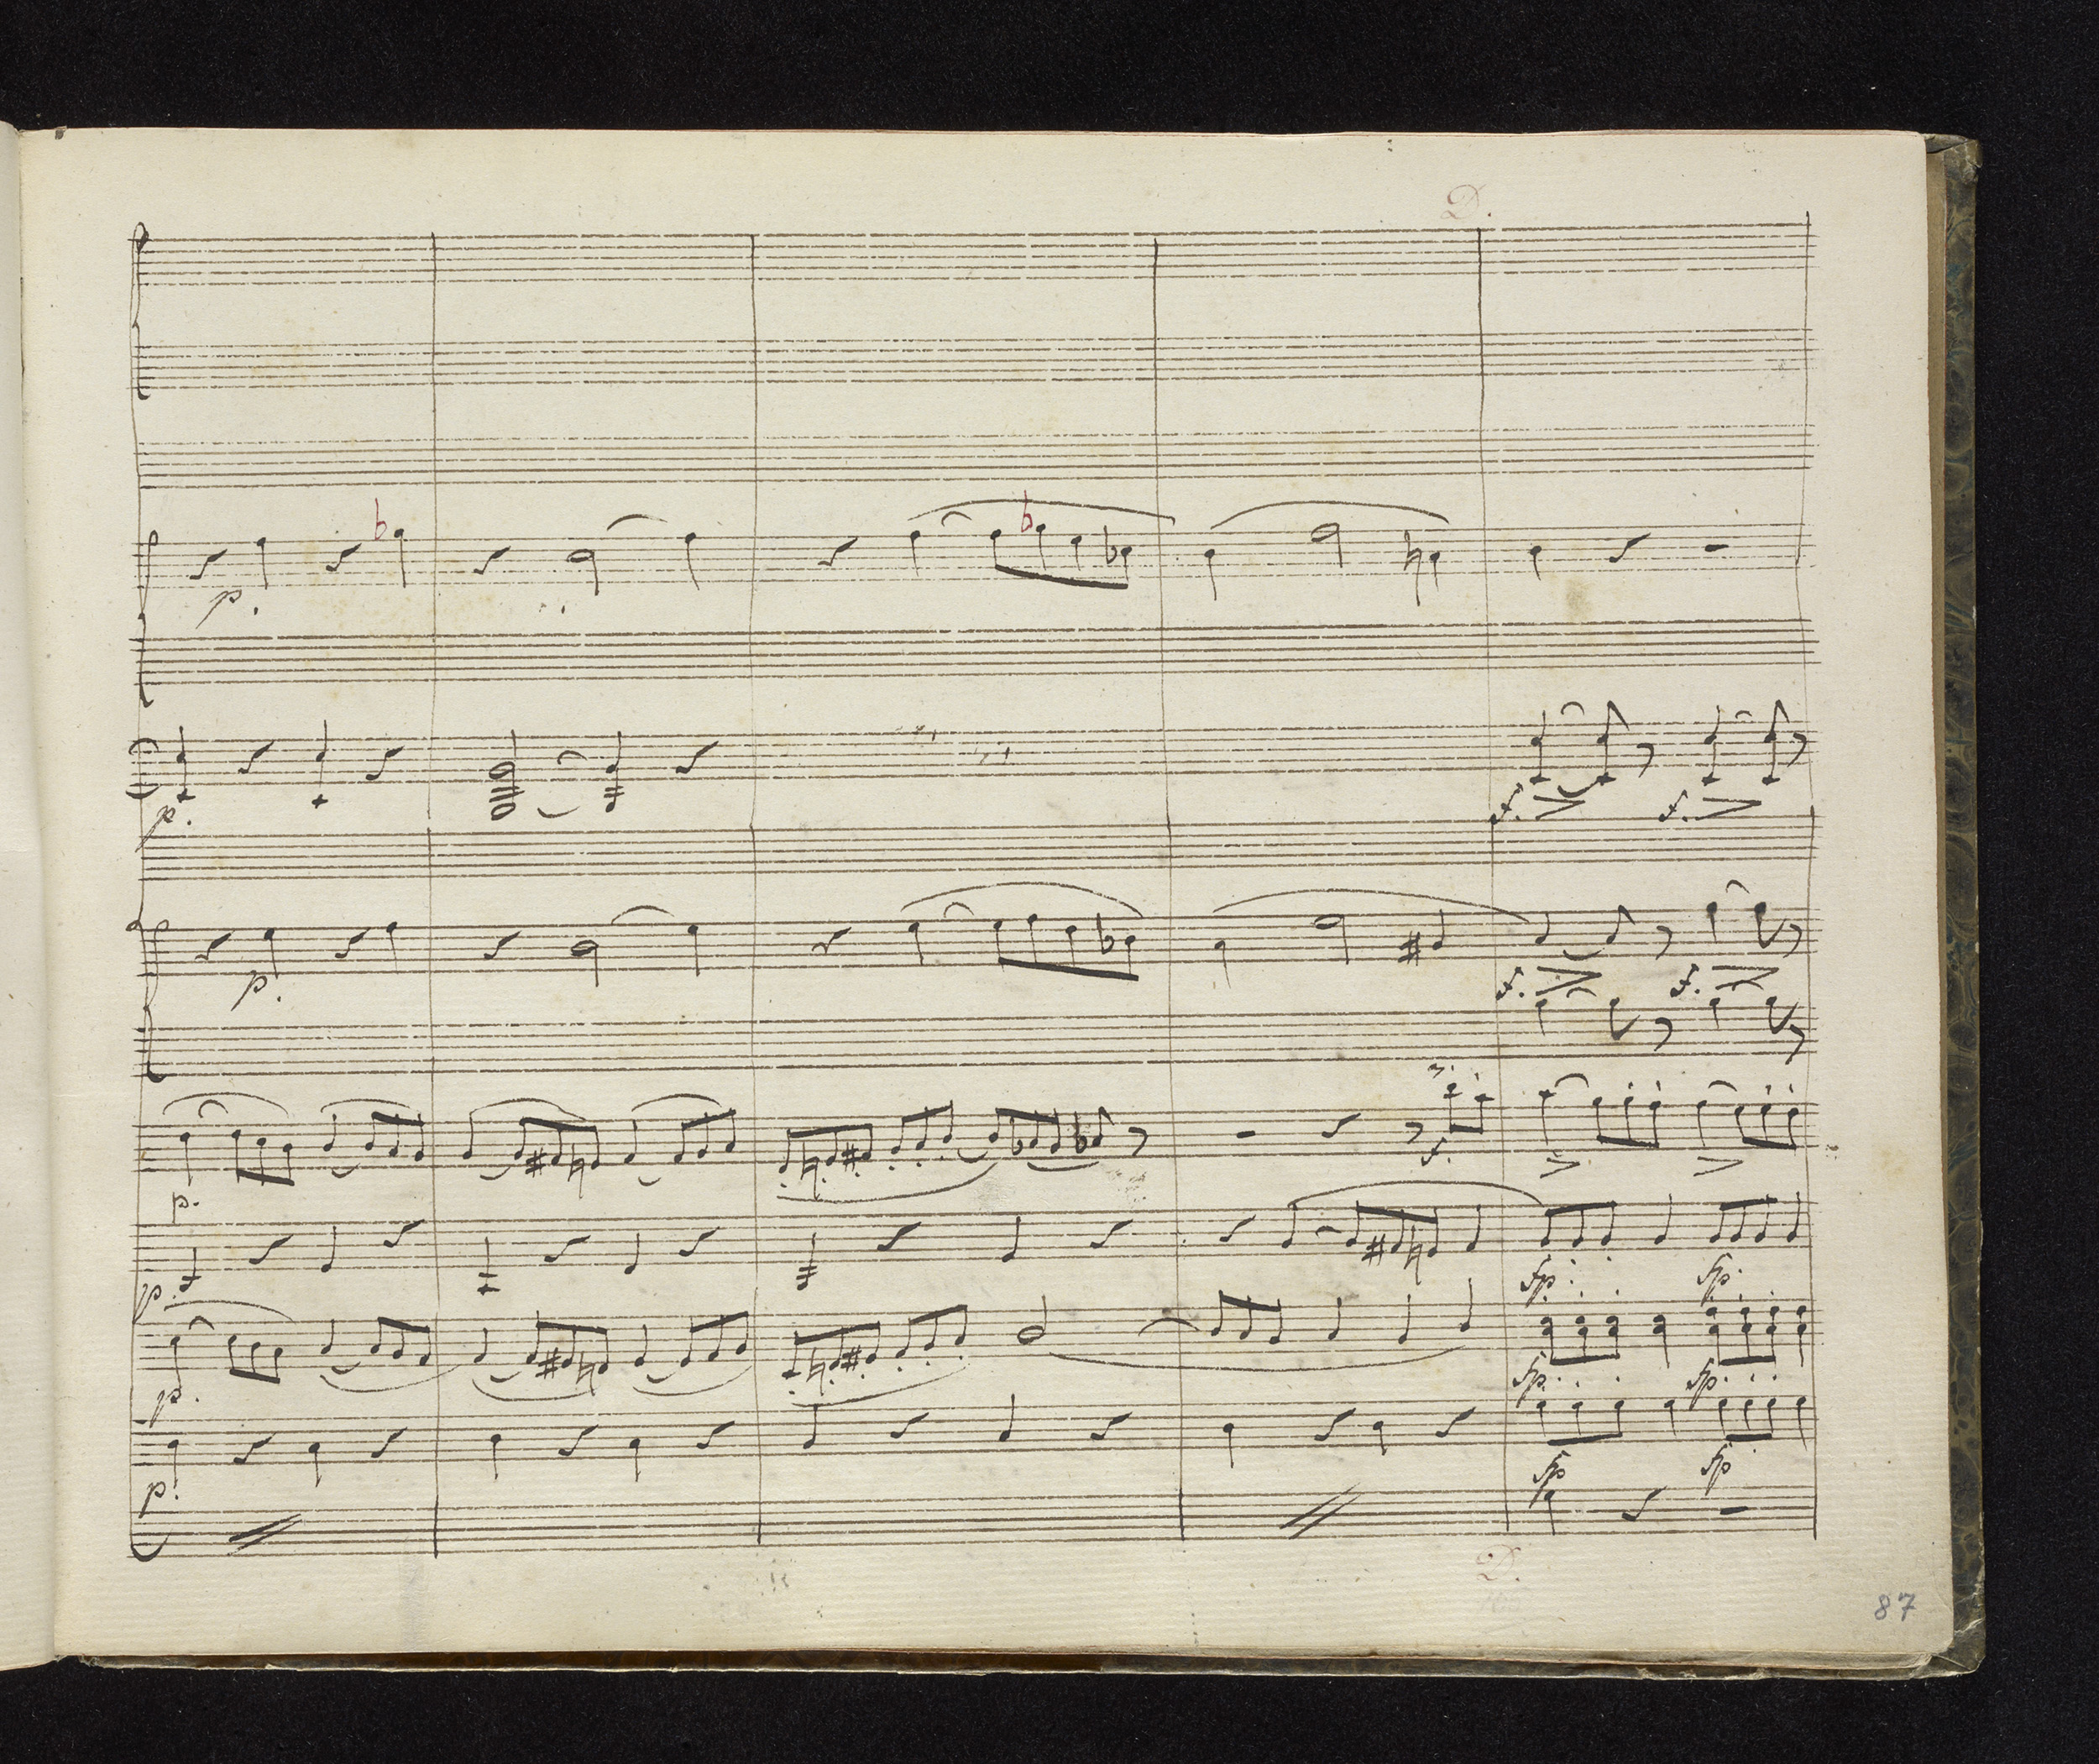 D.
p.
p.
f. f.
p.
f. f.
f.
p.
p. fp. fp.
p. fp. fp.
p. fp fp
D.
87